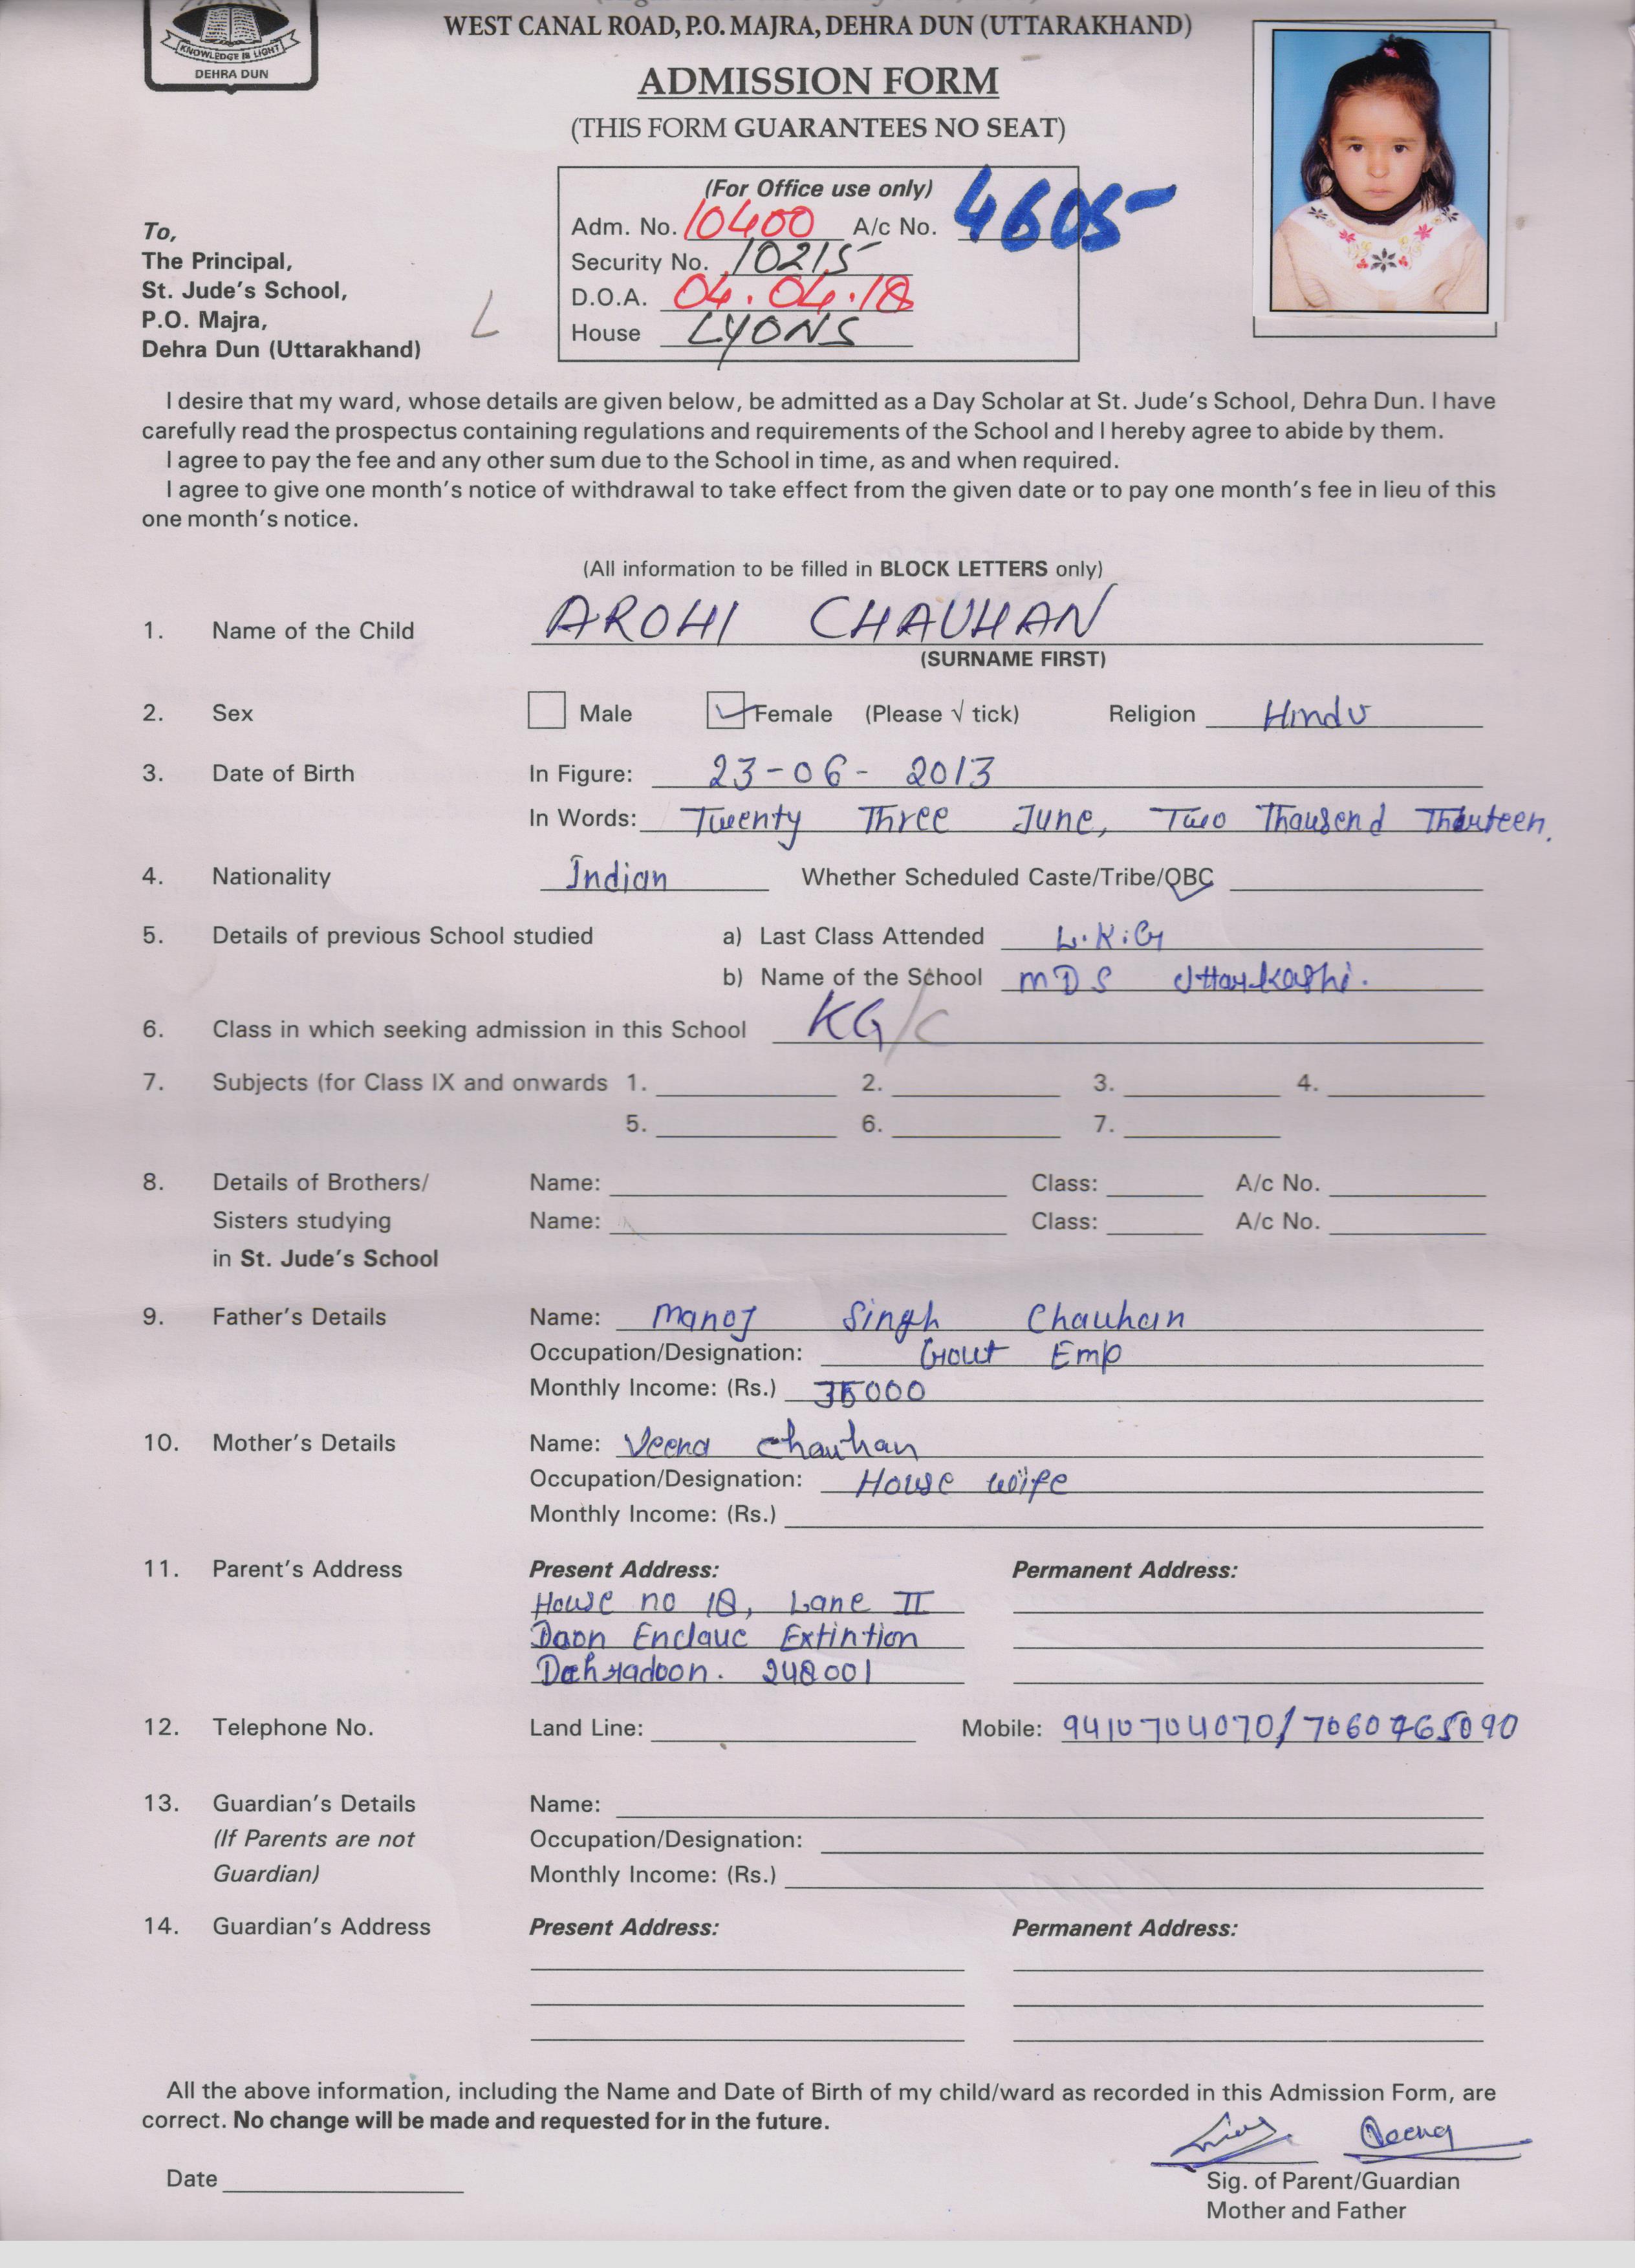 KNOWLEDGE IS LIGHT
DEHRA DUN
WEST CANAL ROAD, P.O. MAJRA, DEHRA DUN (UTTARAKHAND)
ADMISSION FORM
(THIS FORM GUARANTEES NO SEAT)
(For Office use only)
Adm. No. 10400 A/c No. 4605
Security No. 10215
D.O.A. 04.04.18
House LYONS
To,
The Principal,
St. Jude's School,
P.O. Majra,
Dehra Dun (Uttarakhand)
L
I desire that my ward, whose details are given below, be admitted as a Day Scholar at St. Jude's School, Dehra Dun. I have
carefully read the prospectus containing regulations and requirements of the School and I hereby agree to abide by them.
I agree to pay the fee and any other sum due to the School in time, as and when required.
I agree to give one month's notice of withdrawal to take effect from the given date or to pay one month's fee in lieu of this
one month's notice.
(All information to be filled in BLOCK LETTERS only)
1. Name of the Child AROHI CHAUHAN
(SURNAME FIRST)
2. Sex Male Female (Please √ tick) Religion Hindu
3. Date of Birth In Figure: 23-06-2013
In Words: Twenty Three June, Two Thausend Thirteen.
4. Nationality Indian Whether Scheduled Caste/Tribe/OBC
5. Details of previous School studied a) Last Class Attended L.K.G
b) Name of the School MDS Uttarkashi.
6. Class in which seeking admission in this School KG/C
7. Subjects (for Class IX and onwards 1. 2. 3. 4.
5. 6. 7.
8. Details of Brothers/ Name: Class: A/c No.
Sisters studying Name: Class: A/c No.
in St. Jude's School
9. Father's Details Name: Manoj Singh Chauhan
Occupation/Designation: Govt Emp
Monthly Income: (Rs.) 35000
10. Mother's Details Name: Veena Chauhan
Occupation/Designation: House wife
Monthly Income: (Rs.)
11. Parent's Address Present Address: Permanent Address:
House no 18, Lane II
Doon Enclave Extintion
Dehradoon. 248001
12. Telephone No. Land Line: Mobile: 9410704070/7060765090
13. Guardian's Details Name:
(If Parents are not Occupation/Designation:
Guardian) Monthly Income: (Rs.)
14. Guardian's Address Present Address: Permanent Address:
All the above information, including the Name and Date of Birth of my child/ward as recorded in this Admission Form, are
correct. No change will be made and requested for in the future.
Veena
Date
Sig. of Parent/Guardian
Mother and Father